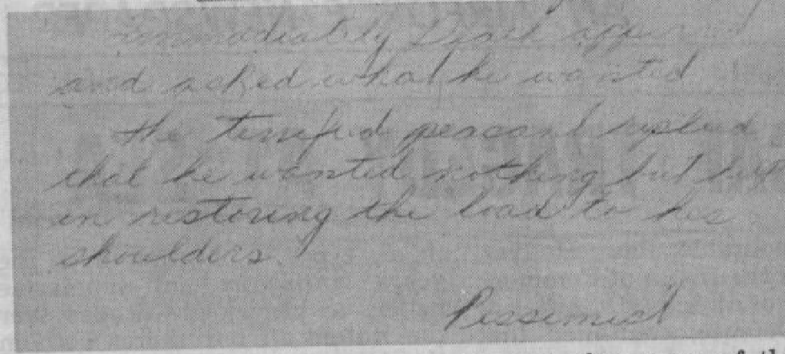 immediately Death appeared
and asked what he wanted
The terrified peasant replied
that he wanted nothing but help
in restoring the load to his
shoulders.
Pessimist